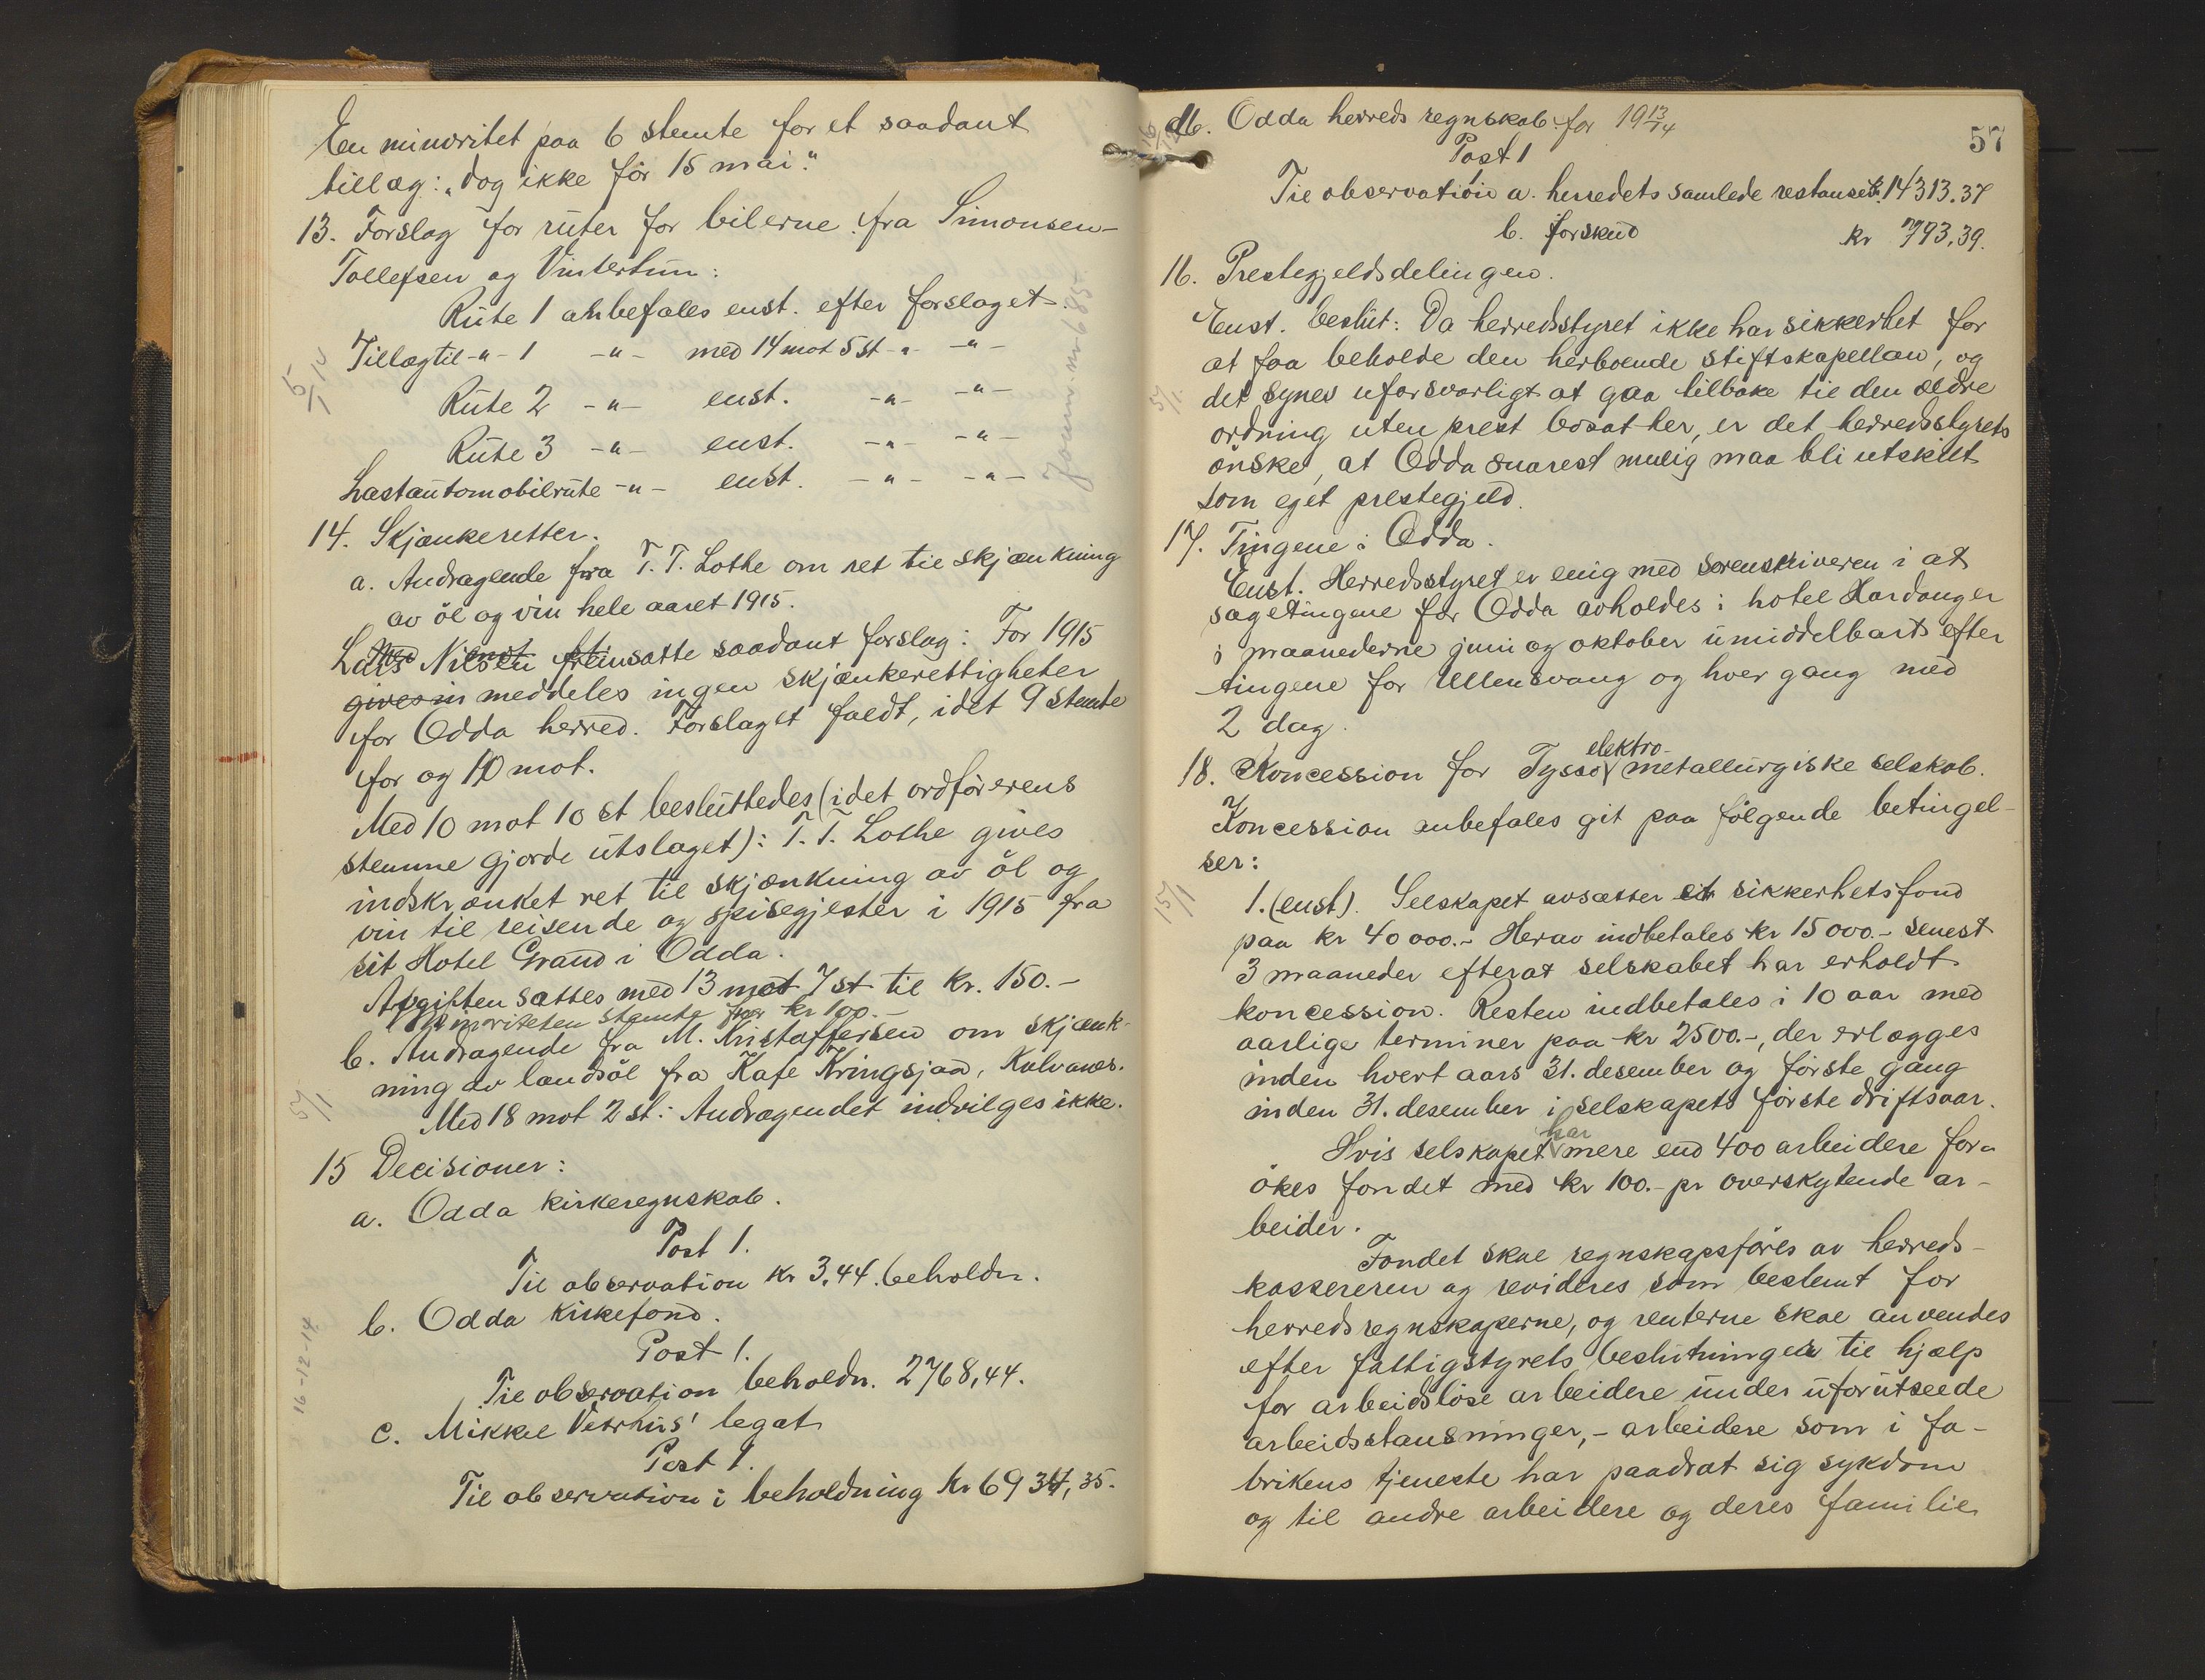 En minoritet paa 6 stemte for et saadant
tillæg: „dog ikke før 15 mai."
13. Forslag for ruter for bilerne fra Simonsen-
Tollefsen og Vintertun:
Rute 1 anbefales enst. efter forslaget.
Tillæg til -"- 1 -"- med 14 mot 5 st -"- -"-
5/1
Rute 2 -"- enst. -"- -"-
Rute 3 -"- enst. -"- -"-
Lastautomobilrute -"- enst. -"- -"-
14. Skjænkeretter.
a. Andragende fra T. T. Lothe om ret til skjænkning
av öl og vin hele aaret 1915.
Lars Nilsen fremsatte saadant forslag: For 1915
gives in meddeles ingen skjænkerettigheter
for Odda herred. Forslaget faldt, idet 9 stemte
for og 10 mot.
Med 10 mot 10 st besluttedes (idet ordførerens
stemme gjorde utslaget): T. T. Lothe gives
indskrænket ret til skjænkning av öl og
vin til reisende og spisegjester i 1915 fra
sit Hotel Grand i Odda.
Avgiften sattes med 13 mot 7 st til kr. 150.-
Minoriteten stemte for kr 100.-
b. Andragende fra M. Kristoffersen om skjænk-
ning av landsöl fra Kafe Kringsjaa, Kalvanes.
5/1
Med 18 mot 2 st.: Andragendet indvilges ikke.
15 Decisioner:
a. Odda kirkeregnskab.
Post 1.
Til observation kr 3,44. beholdn.
b. Odda kirkefond.
16-12-14
Post 1.
Til observation beholdn. 2768,44.
c. Mikkel Vetrhus' legat
Post 1.
Til observation i beholdning kr 6934,35.
57
d. Odda herreds regnskab for 1913/14
Post 1
Til observation a. herredets samlede restanse kr. 14313.37
b. forskud kr 793,39.
16. Prestegjeldsdelingen.
Enst. beslut: Da herredsstyret ikke har sikkerhet for
at faa beholde den herboende stiftskapellan, og
5/1
det synes uforsvarligt at gaa tilbake til den ældre
ordning uten prest bosat her, er det herredsstyrets
önske, at Odda snarest mulig maa bli utskilt
som eget prestegjeld.
17. Tingene i Odda.
Enst. Herredsstyret er enig med sorenskriveren i at
sagetingene for Odda avholdes i hotel Hardanger
i maanederne juni og oktober umiddelbart efter
tingene for Ullensvang og hver gang med
2 dag.
18. Koncession for Tysso elektro- metallurgiske selskab.
Koncession anbefales git paa følgende betingel-
ser:
15/1
1. (enst). Selskapet avsætter et sikkerhetsfond
paa kr 40000.- Herav indbetales kr 15000.- senest
3 maaneder efterat selskabet har erholdt
koncession. Resten indbetales i 10 aar med
aarlige terminer paa kr 2500.-, der erlægges
inden hvert aars 31. desember og første gang
inden 31. desember i selskapets første driftsaar.
Hvis selskapet har mere end 400 arbeidere for-
økes fondet med kr 100.- pr overskytende ar-
beider.
Fondet skal regnskapsføres av herreds-
kassereren og revideres som bestemt for
herredsregnskaperne, og renterne skal anvendes
efter fattigstyrets beslutninger til hjælp
for arbeidsløse arbeidere under uforutseede
arbeidsstansninger, - arbeidere som i fa-
brikens tjeneste har paadrat sig sykdom
og til andre arbeidere og deres familie